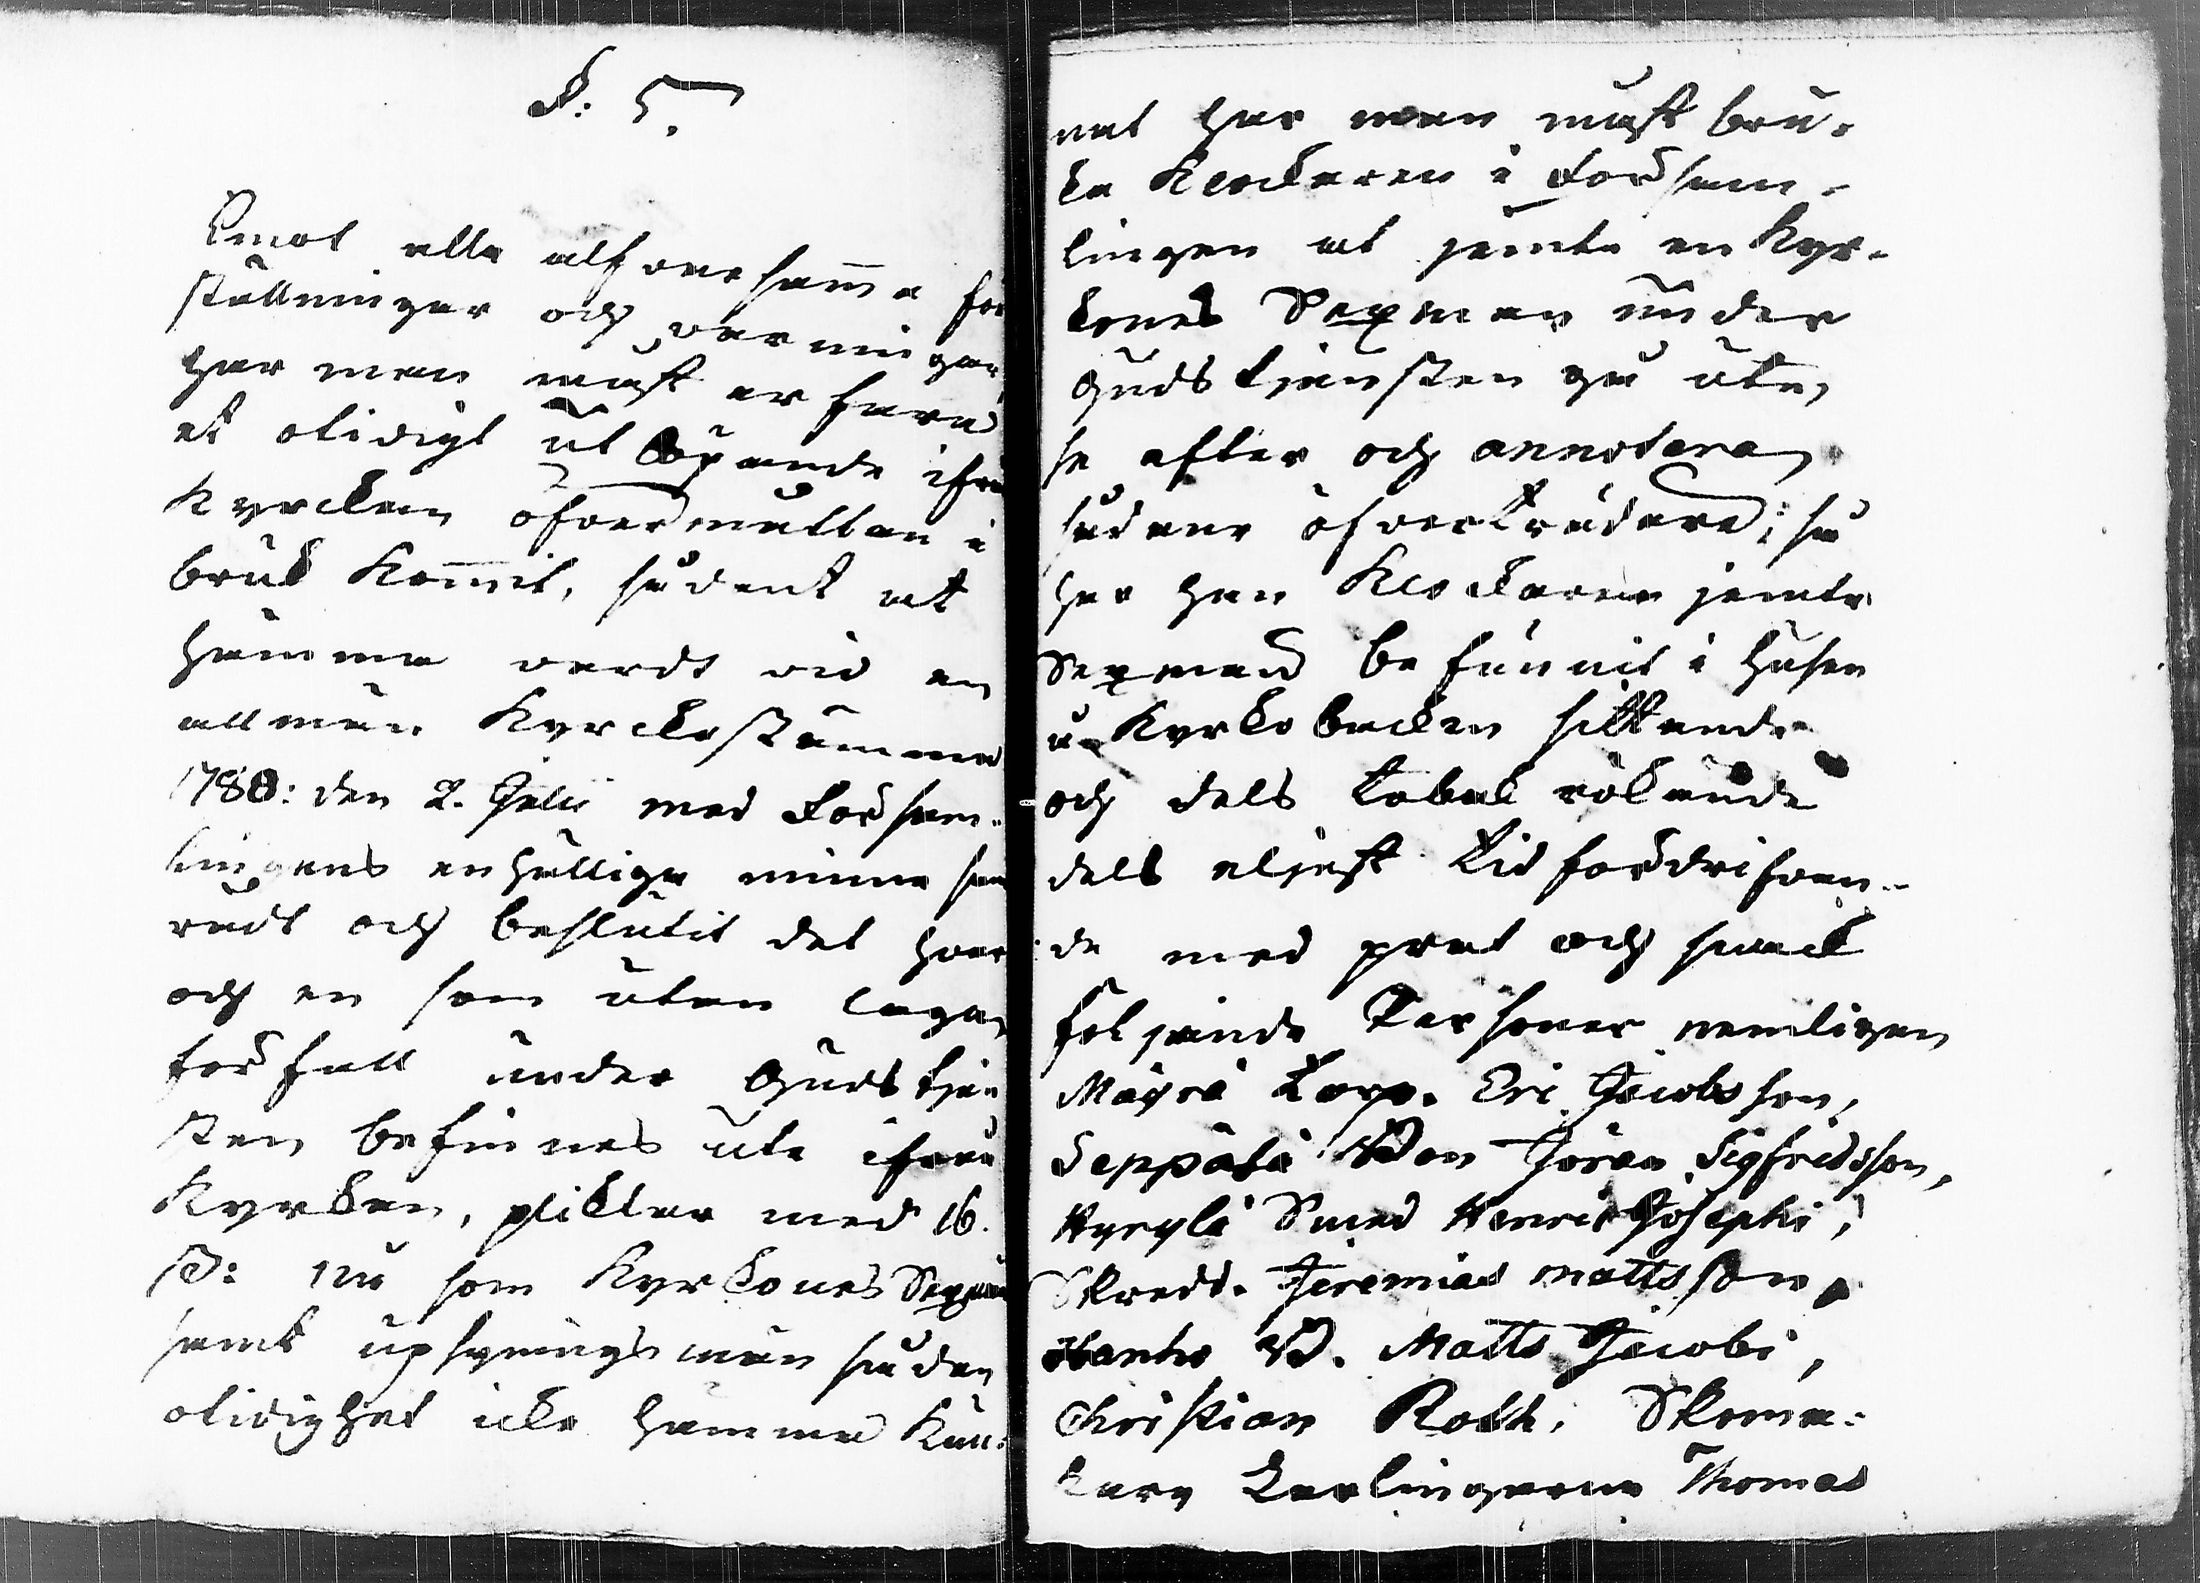 §: 5.
Emot alla alfvarsamma för
ställningar och varningar
har man måst erfara
et otidigt utlöpande ifrån
Kyrckan öfver måttan i
bruk kommit, sådant at
hämma vardt vid en
allmän Kyrckostämma
1780: den 2. Julii med Församm-
lingens enhälliga minne sam
rådt och beslutit det hvar
och en som utan laga
förfall under Gudstjen
sten befinnes ute ifrån
Kyrkan, plikter med 16.
s: nu som Kyrkones Sexmän
samt upsyningsmän sådan
otidighet icke hämma kun:
nat har man måst bru-
ka Klockaren i Försam-
lingen at jemte en Kyr-
kones Sexman under
Gudstjensten gå ute,
se efter och annotera
sådane öfverträdare; så
har han Klockaren jemte
Sexman befunnit i husen
å Kyrkobacken sittande
och dels tobak rökande
dels eljest tid fördrifvan-
de med prat och snack
följande Personer nemligen
Mäyrä Torp. Eric Jacobsson,
Seppälä Bon Jöran Sigfridsson,
Hyrylä Smed Henric Josephi,
Skredd. Jeremias Mattsson,
Hanho B. Matts Jacobi,
Christian Roth, Skoma-
kare Lärlingarne Thomas